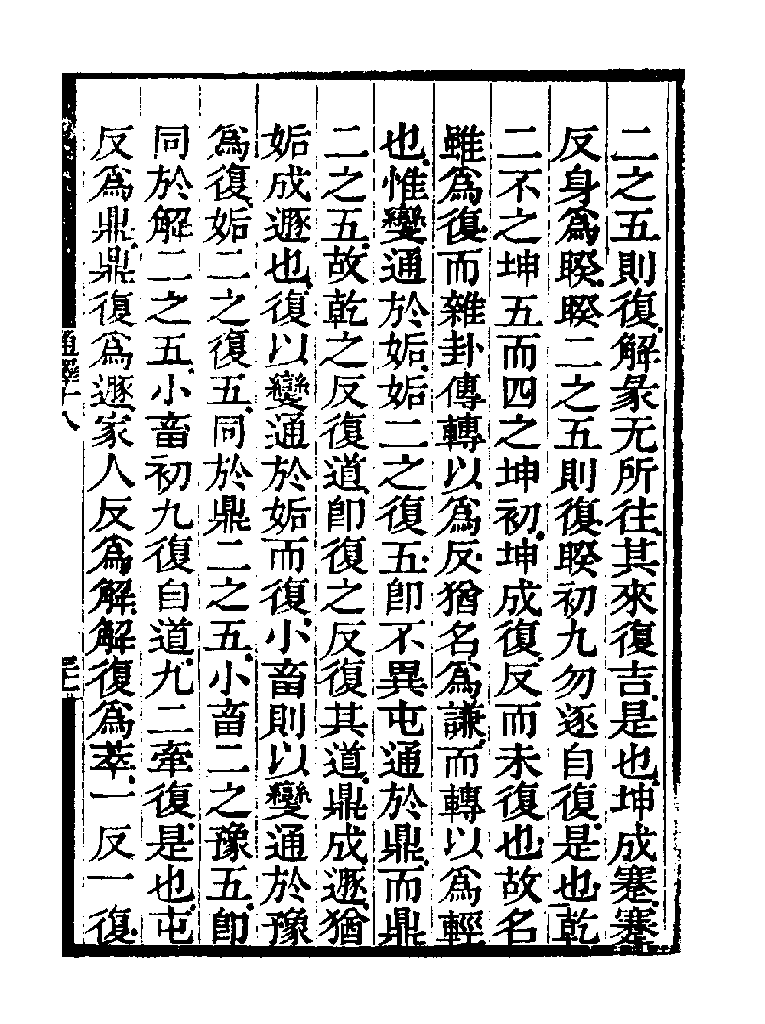 二之五則復解彖无所往其來復吉是也坤成蹇蹇
反身爲睽睽二之五則復睽初九勿逐自復是也乾
二不之坤五而四之坤初坤成復反而未復也故名
雖爲復而雜卦傳轉以爲反猶名爲謙而轉以爲輕
也惟變通於姤姤二之復五卽不異屯通於鼎而鼎
二之五故乾之反復道卽復之反復其道鼎成遯猶
姤成遯也復以變通於姤而復小畜則以變通於豫
爲復姤二之復五同於鼎二之五小畜二之豫五卽
同於解二之五小畜初九復自道九二牽復是也屯
反爲鼎鼎復爲遯家人反爲解解復爲萃一反一復
通釋十八